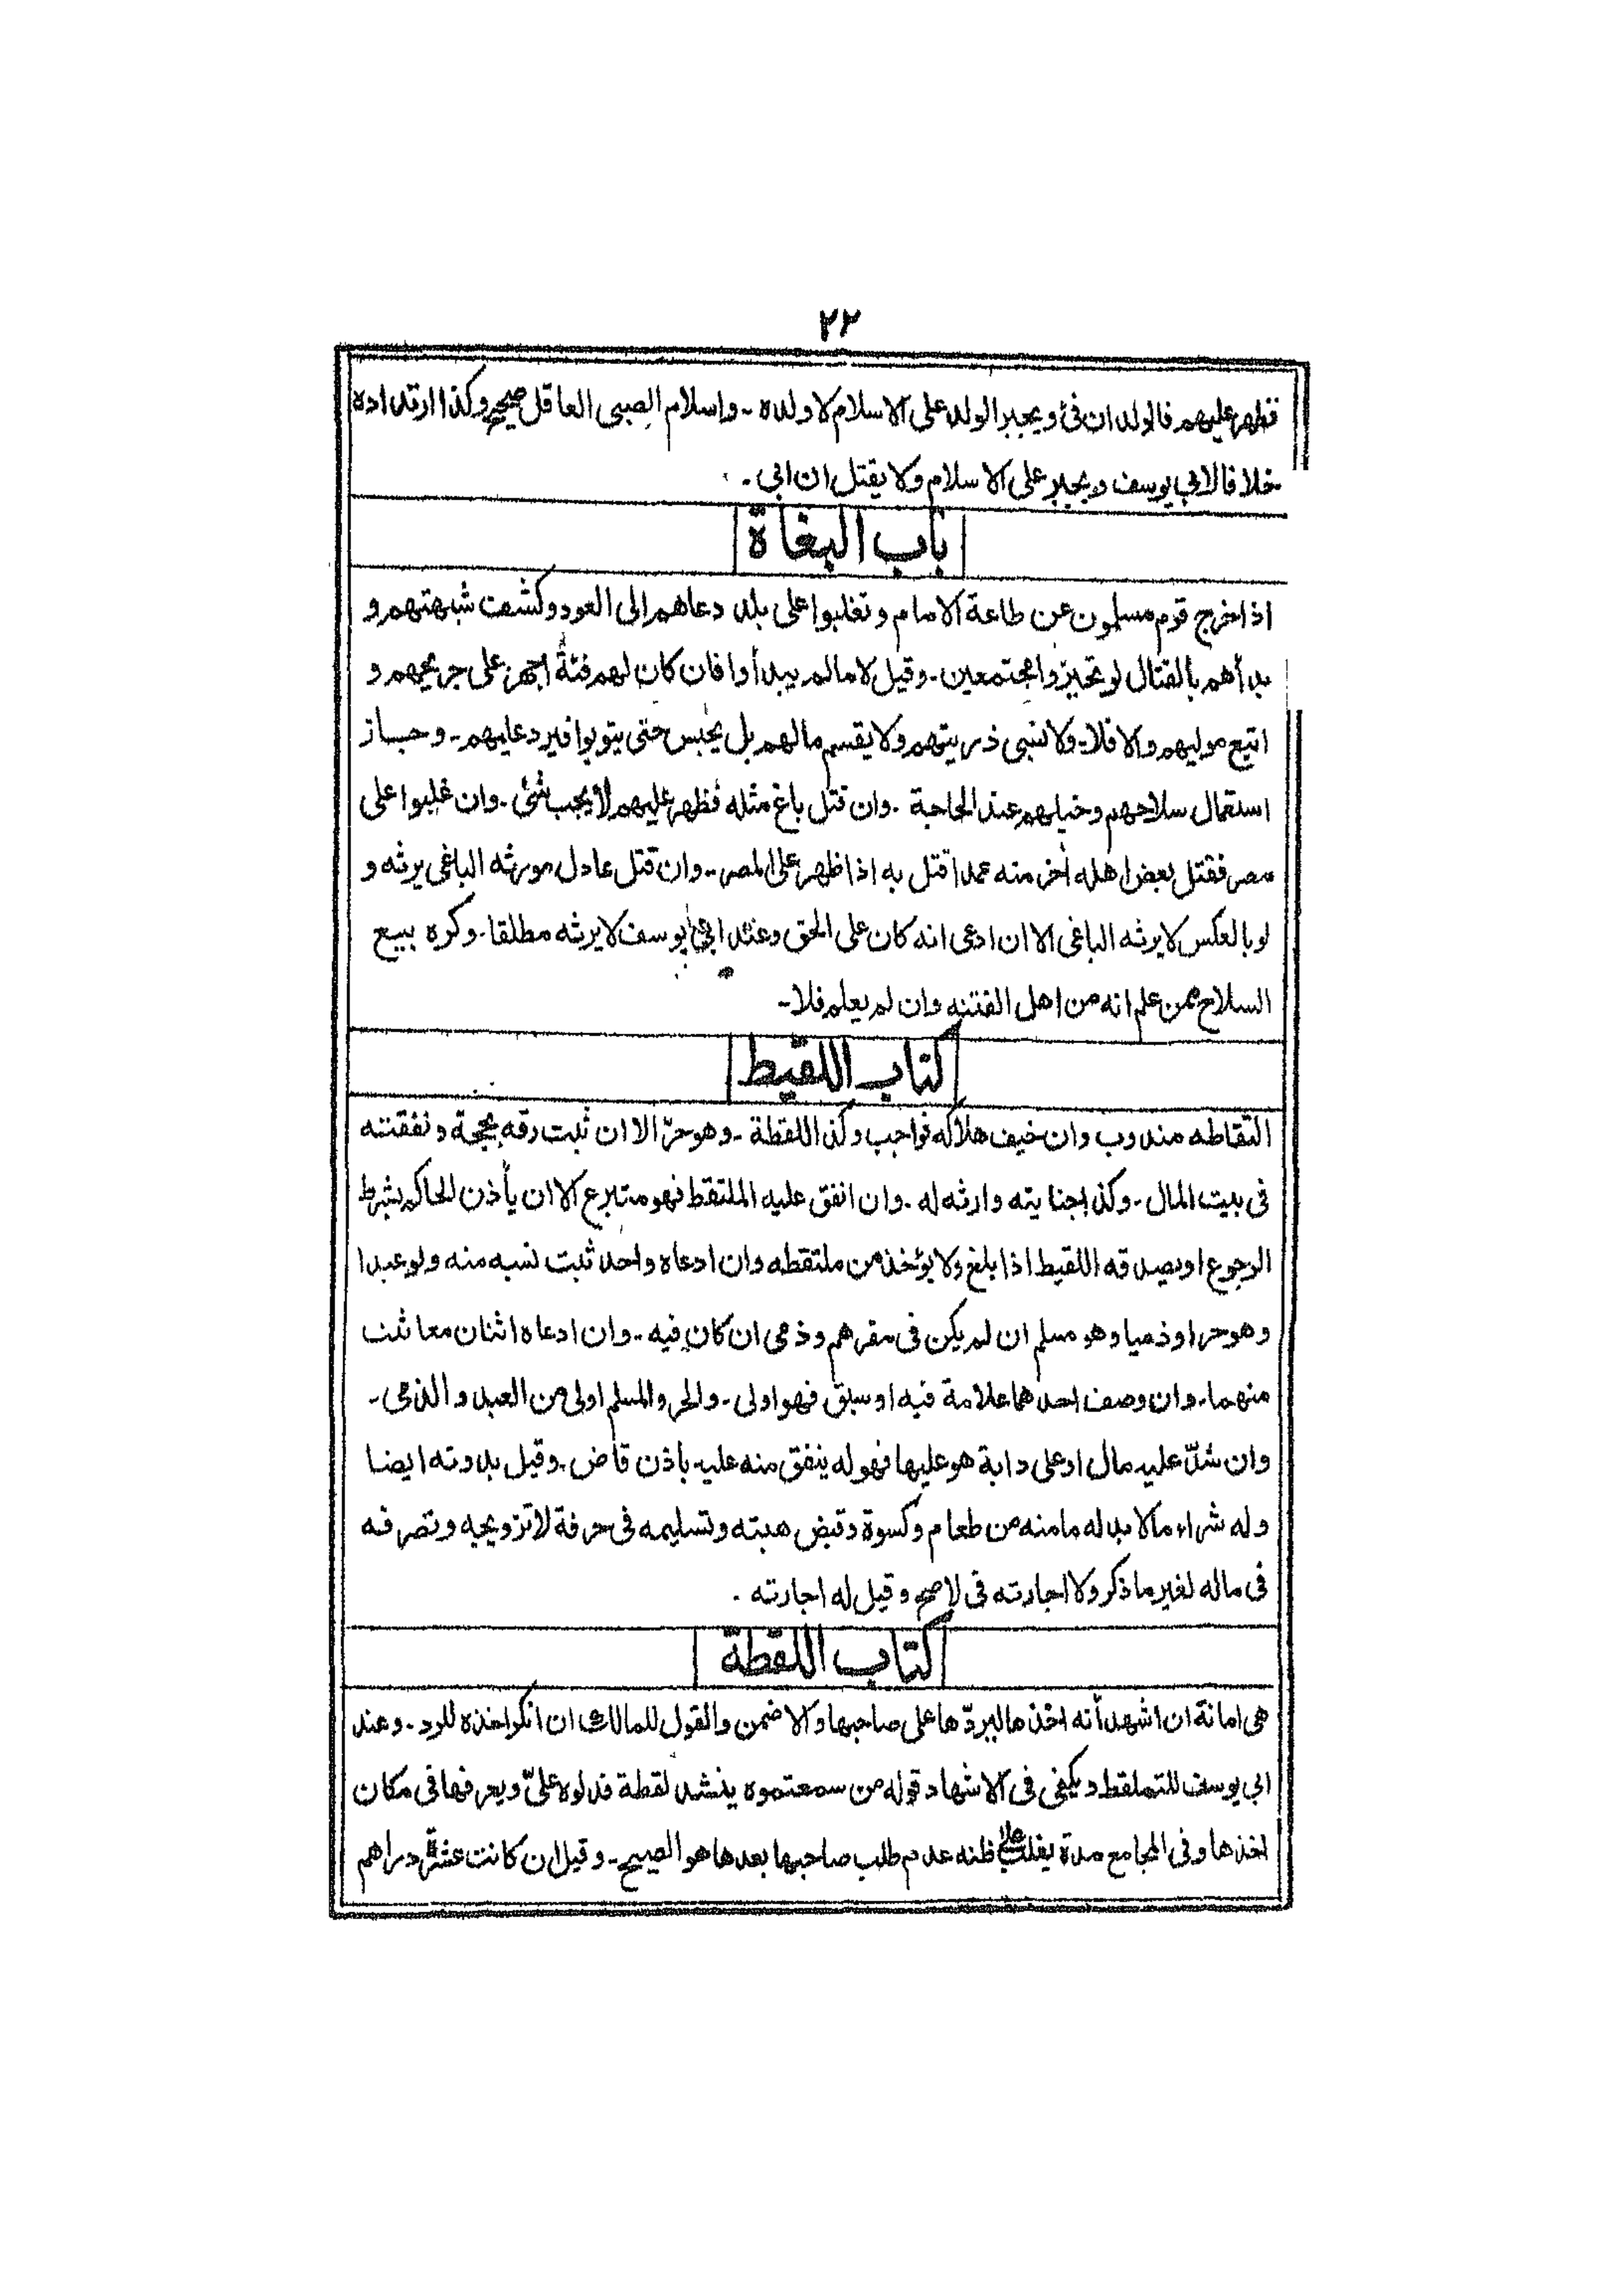 ٢٢
فظهر عليهم فالولدان فئ و يجبر الولد على الاسلام لا ولده - و اسلام الصبى العاقل صحيح وكذا ارتداده
خلافا لابي يوسف و يجبر على الاسلام ولا يقتل ان ابى -
باب البغاة
اذا خرج قوم مسلمون عن طاعة الامام و تغلبوا على بلد دعاهم الى العود و كشف شبهتهم و
بدأهم بالقتال لو تحيزوا مجتمعين - وقيل لا مالم يبدأوا فان كان لهم فئة اجهز على جريحهم و
اتبع موليهم والا فلا - ولا تسبى ذريتهم ولا يقسم مالهم بل يحبس حتى يتوبوا فيرد عليهم - و جاز
استعمال سلاحهم و خيلهم عند الحاجة - وان قتل باغ مثله فظهر عليهم لا يجب شئ - وان غلبوا على
مصر فقتل بعض اهله اخر منه عمدا قتل به اذا ظهر على المصر - وان قتل عادل مورثه الباغى يرثه و
لو بالعكس لا يرثه الباغى الا ان ادعى انه كان على الحق وعند ابي يوسف لا يرثه مطلقا - وكره بيع
السلاح ممن علم انه من اهل الفتنه وان لم يعلم فلا -
كتاب اللقيط
التقاطه مندوب وان خيف هلاكه فواجب و كذا اللقطة - وهو حرّ الا ان ثبت رقه بحجة و نفقتنه
فى بيت المال - وكذا جنايته وارثه له - وان انفق عليه الملتقط فهو متبرع الا ان يأذن الحاكم بشرط
الرجوع او يصدقه اللقيط اذا بلغ ولا يؤخذ من ملتقطه وان ادعاه واحد ثبت نسبه منه ولو عبدا
وهو حر او ذميا وهو مسلم ان لم يكن فى مقرهم و ذمى ان كان فيه - وان ادعاه اثنان معا ثبت
منهما - وان وصف احدهما علامة فيه او سبق فهو اولى - والحر والمسلم اولى من العبد والذمى -
وان شدّ عليه مال او على دابة هو عليها فهو له ينفق منه عليه باذن قاض - وقيل بدونه ايضا
وله شراء مالا بد له مامنه من طعام وكسوة وقبض هبته و تسليمه فى حرفة لا تزويجه و تصرفه
فى ماله لغير ما ذكر ولا اجارته فى لاصح وقيل له اجارته -
كتاب اللقطة
هى امانة ان اشهد أنه اخذها ليردّها على صاحبها والا ضمن والقول للمالك ان انكر اخذه للرد - وعند
ابي يوسف للتملقط و يكفى فى الاشهاد قوله من سمعتموه ينشد لقطة فدلوه علىّ و يعرفها فى مكان
اخذها وفى المجامع مدة يغلب على ظنه عدم طلب صاحبها بعدها هو الصحيح - وقيل ان كانت عشرة دراهم